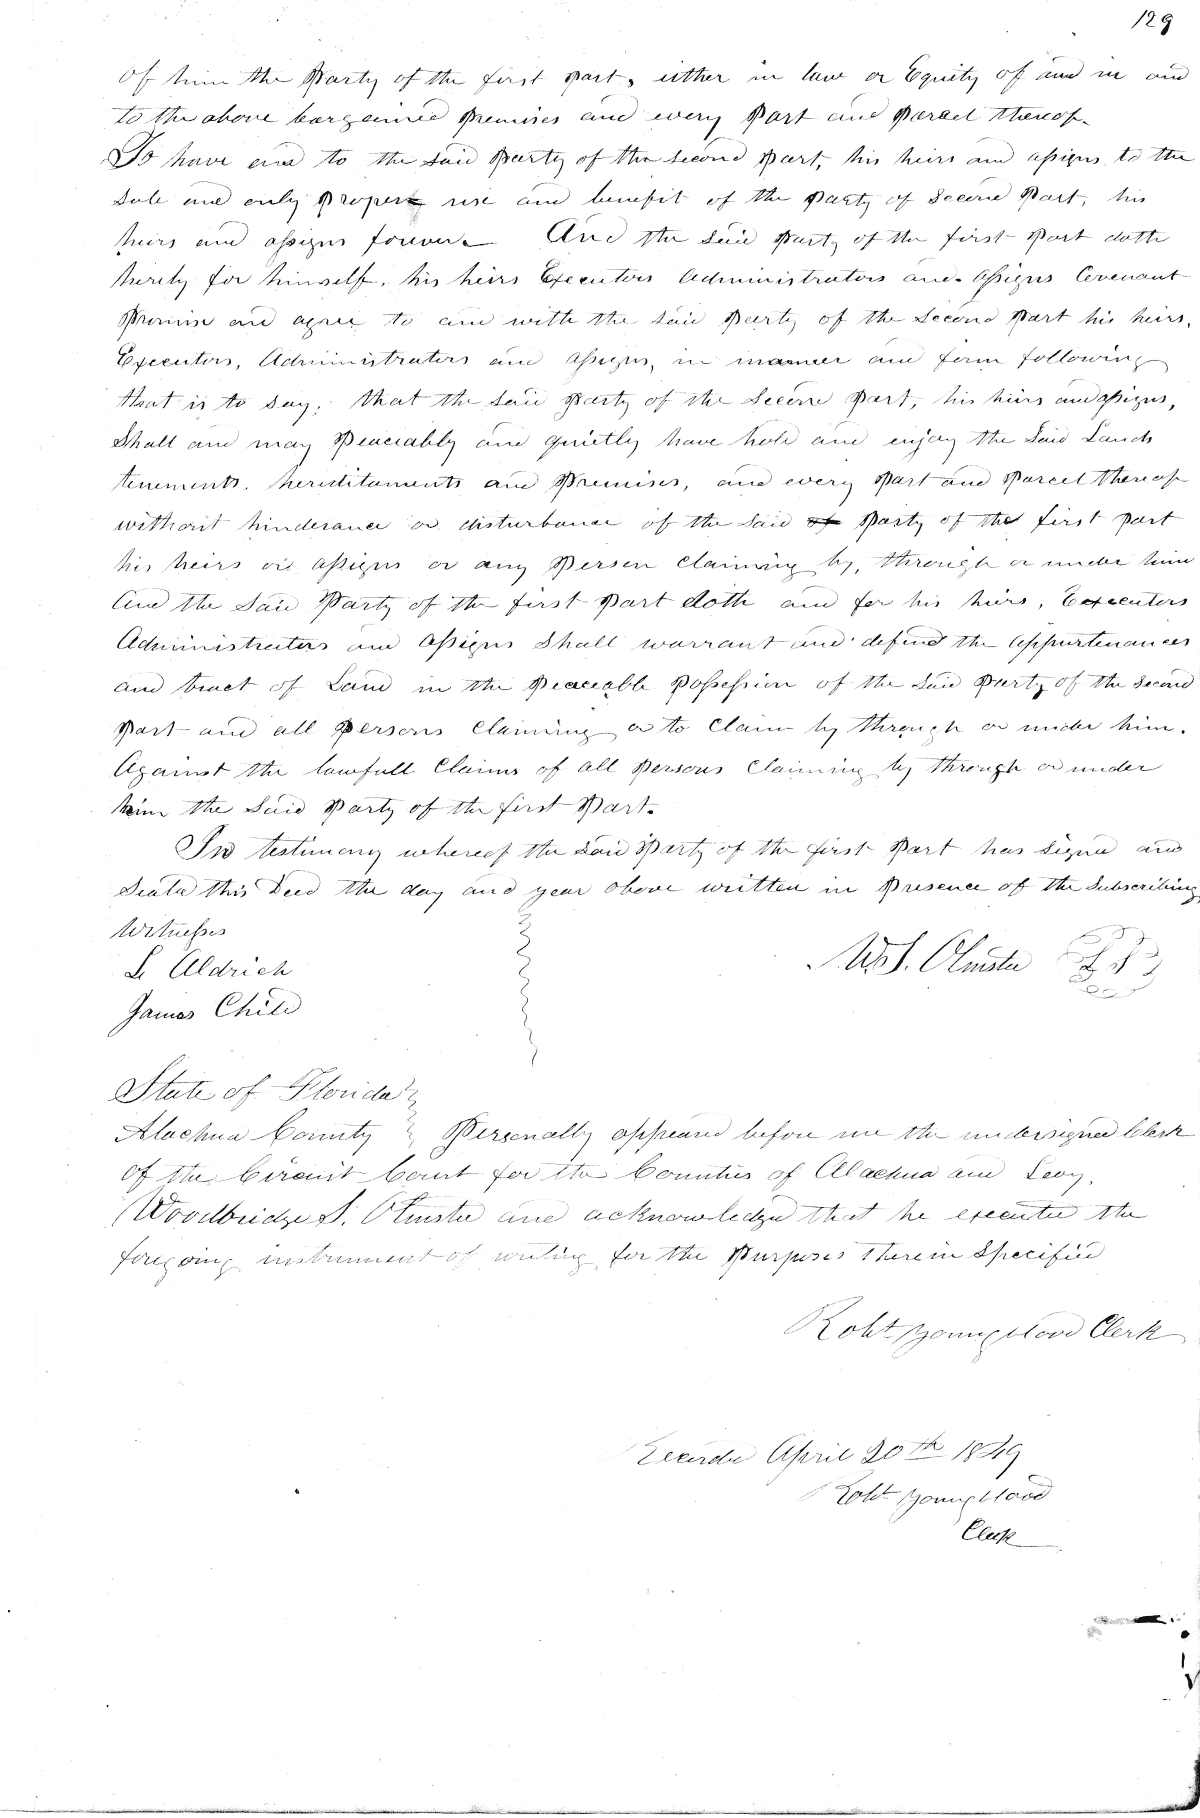 129
of him the Party of the first part, either in law or Equity of and in and
to the above bargained Premises and every Part and Parcel thereof.
To have and to the said Party of the second Part, his heirs and assigns to the
sole and only proper use and benefit of the Party of Second Part, his
heirs and assigns forever. And the said Party of the first Part doth
hereby for himself, his heirs Executors Administrators and assigns Covenant
Promise and agree to and with the said Party of the Second Part his heirs,
Executors, Administrators and assigns, in manner and form following
that is to say, that the said Party of the Second Part, his heirs and assigns,
Shall and may Peaceably and quietly have hold and enjoy the Said Lands
tenements, hereditaments and Premises, and every Part and Parcel thereof
without hinderance or disturbance of the said of Party of the first part
his heirs or assigns or any Person claiming by, through or under him
And the Said Party of the first Part doth and for his heirs, Executors
Administrators and assigns Shall warrant and defend the appurtenances
and tract of Land in the Peaceable Possession of the Said Party of the Second
Part and all Persons Claiming or to Claim by through or under him.
Against the lawfull Claims of all Persons Claiming by through or under
him the Said Party of the first Part.
In testimony whereof the said Party of the first Part has signed and
Seald this Deed the day and year above written in Presence of the Subscribing
Witnesses
L Aldrich
W. S. Olmsted L S
James Child
State of Florida
Alachua County Personally appeared before me the undersigned Clerk
of the Circuit Court for the Counties of Alachua and Levy,
Woodbridge S. Olmsted and acknowledged that he executed the
foregoing instrument of writing for the Purposes therein Specified
Robt Youngblood Clerk
Recorded April 20th 1849
Robt Youngblood
Clerk